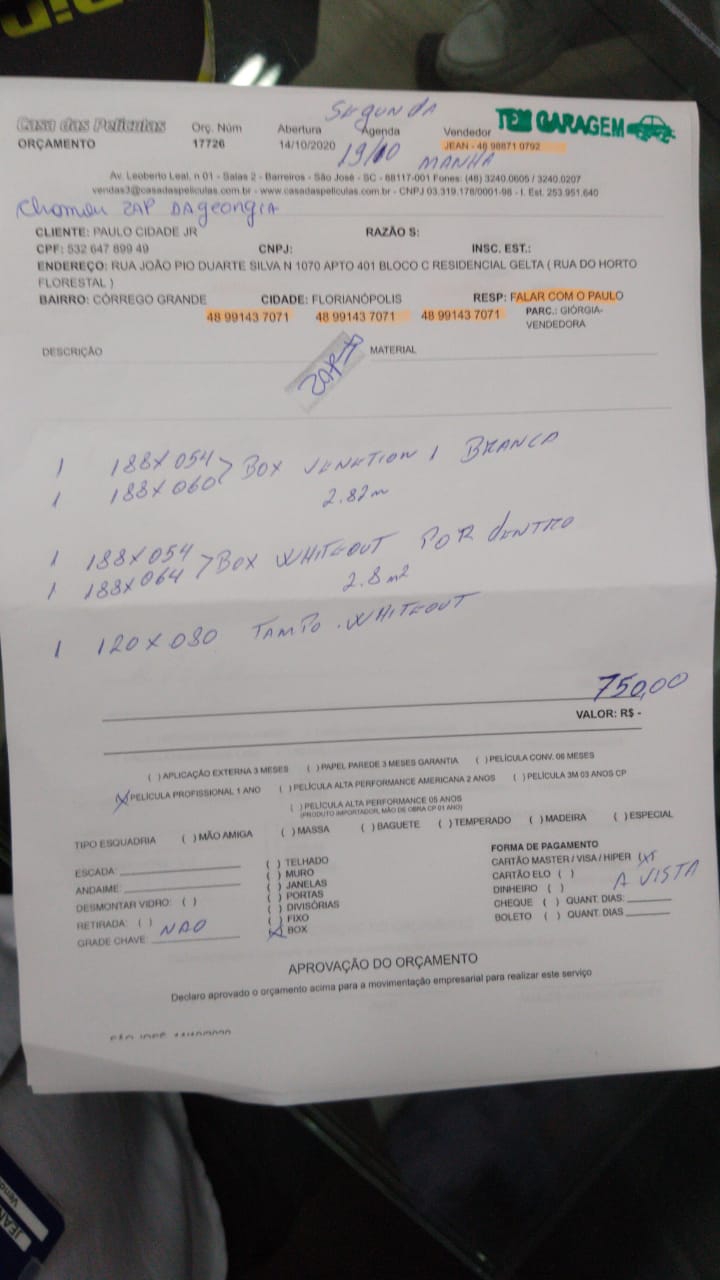 SEGUNDA
Casa das Películas Orç. Núm Abertura Agenda Vendedor TEM GARAGEM
ORÇAMENTO 17726 14/10/2020 19/10 MANHA JEAN - 48 98871 0792
Av. Leoberto Leal, n 01 - Salas 2 - Barreiros - São José - SC - 88117-001 Fones: (48) 3240.0605 / 3240.0207
vendas3@casadaspeliculas.com.br - www.casadaspeliculas.com.br - CNPJ 03.319.178/0001-98 - I. Est. 253.951.640
Chamou ZAP DA georgia
CLIENTE: PAULO CIDADE JR RAZÃO S:
CPF: 532 647 899 49 CNPJ: INSC. EST.:
ENDEREÇO: RUA JOÃO PIO DUARTE SILVA N 1070 APTO 401 BLOCO C RESIDENCIAL GELTA ( RUA DO HORTO
FLORESTAL )
BAIRRO: CÓRREGO GRANDE CIDADE: FLORIANÓPOLIS RESP: FALAR COM O PAULO
48 99143 7071 48 99143 7071 48 99143 7071 PARC.: GIÓRGIA-
VENDEDORA
DESCRIÇÃO MATERIAL
ZAP
1 188X054 > BOX 1 BRANCA
1 188X060 2.82m
1 188X054 > BOX WHITEOUT POR dENTRO
1 188X064 2.8m²
1 120X080 TAMPO . WHITEOUT
750,00
VALOR: R$ -
( ) APLICAÇÃO EXTERNA 3 MESES ( ) PAPEL PAREDE 3 MESES GARANTIA ( ) PELÍCULA CONV. 06 MESES
(X) PELÍCULA PROFISSIONAL 1 ANO ( ) PELÍCULA ALTA PERFORMANCE AMERICANA 2 ANOS ( ) PELÍCULA 3M 03 ANOS CP
( ) PELÍCULA ALTA PERFORMANCE 05 ANOS
(PRODUTO IMPORTADOR, MÃO DE OBRA CP 01 ANO)
TIPO ESQUADRIA ( ) MÃO AMIGA ( ) MASSA ( ) BAGUETE ( ) TEMPERADO ( ) MADEIRA ( ) ESPECIAL
ESCADA:
ANDAIME:
DESMONTAR VIDRO: ( )
RETIRADA: ( ) NAO
GRADE CHAVE:
( ) TELHADO
( ) MURO
( ) JANELAS
( ) PORTAS
( ) DIVISÓRIAS
( ) FIXO
(X) BOX
FORMA DE PAGAMENTO
CARTÃO MASTER / VISA / HIPER (X)
CARTÃO ELO ( ) A VISTA
DINHEIRO ( )
CHEQUE ( ) QUANT. DIAS:
BOLETO ( ) QUANT. DIAS
APROVAÇÃO DO ORÇAMENTO
Declaro aprovado o orçamento acima para a movimentação empresarial para realizar este serviço